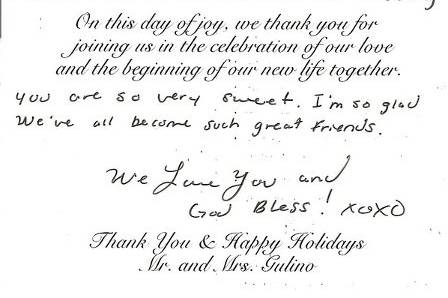 On this day of joy, we thank you for
joining us in the celebration of our love
and the beginning of our new life together.
you are so very sweet. I'm so glad
We've all become such great friends.
We Love You and
God Bless! xoxo
Thank You & Happy Holidays
Mr. and Mrs. Gulino